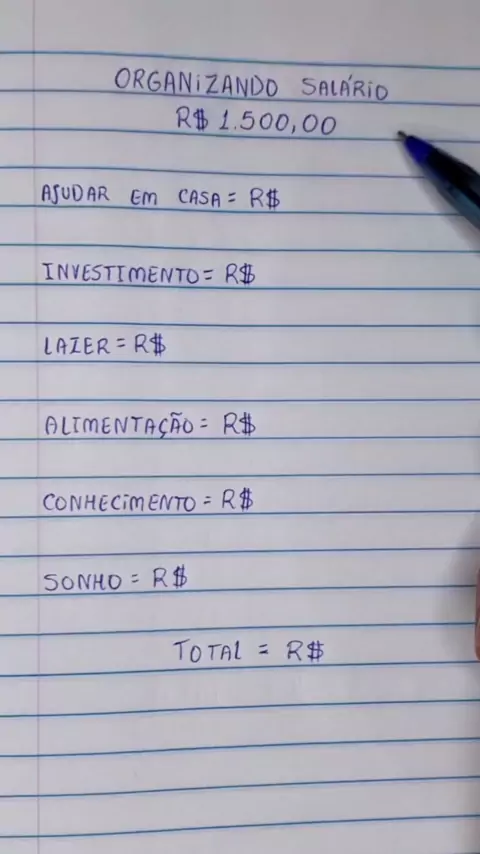 ORGANIZANDO SALÁRIO
R$ 1.500,00
AJUDAR EM CASA = R$
INVESTIMENTO = R$
LAZER = R$
ALIMENTAÇÃO = R$
CONHECIMENTO = R$
SONHO = R$
TOTAL = R$